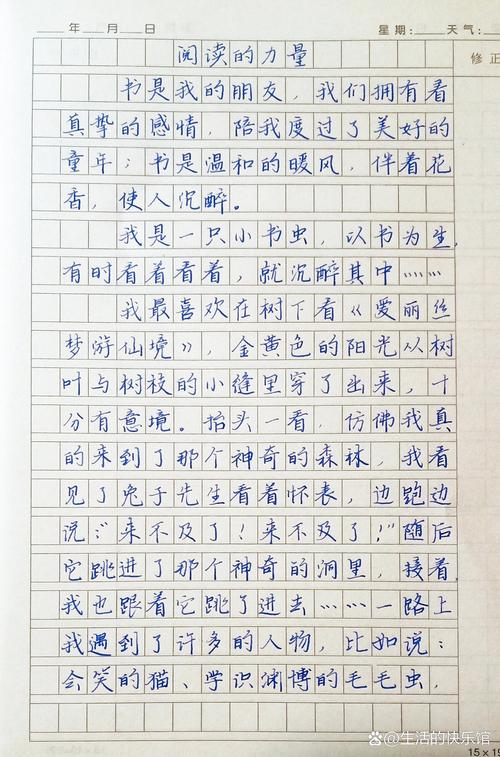 年 月 日 星期: 天气:
修正
阅读的力量
书是我的朋友，我们拥有看
真挚的感情，陪我度过了美好的
童年；书是温和的暖风，伴着花
香，使人沉醉。
我是一只小书虫，以书为生，
有时看着看着，就沉醉其中……
我最喜欢在树下看《爱丽丝
梦游仙境》，金黄色的阳光从树
叶与树枝的小缝里穿了出来，十
分有意境。抬头一看，仿佛我真
的来到了那个神奇的森林，我看
见了兔子先生看着怀表，边跑边
说：“来不及了！来不及了！”随后
它跳进了那个神奇的洞里，接着，
我也跟着它跳了进去……一路上
我遇到了许多的人物，比如说：
会笑的猫、学识渊博的毛毛虫，
头条 @生活的快乐馆
15×19